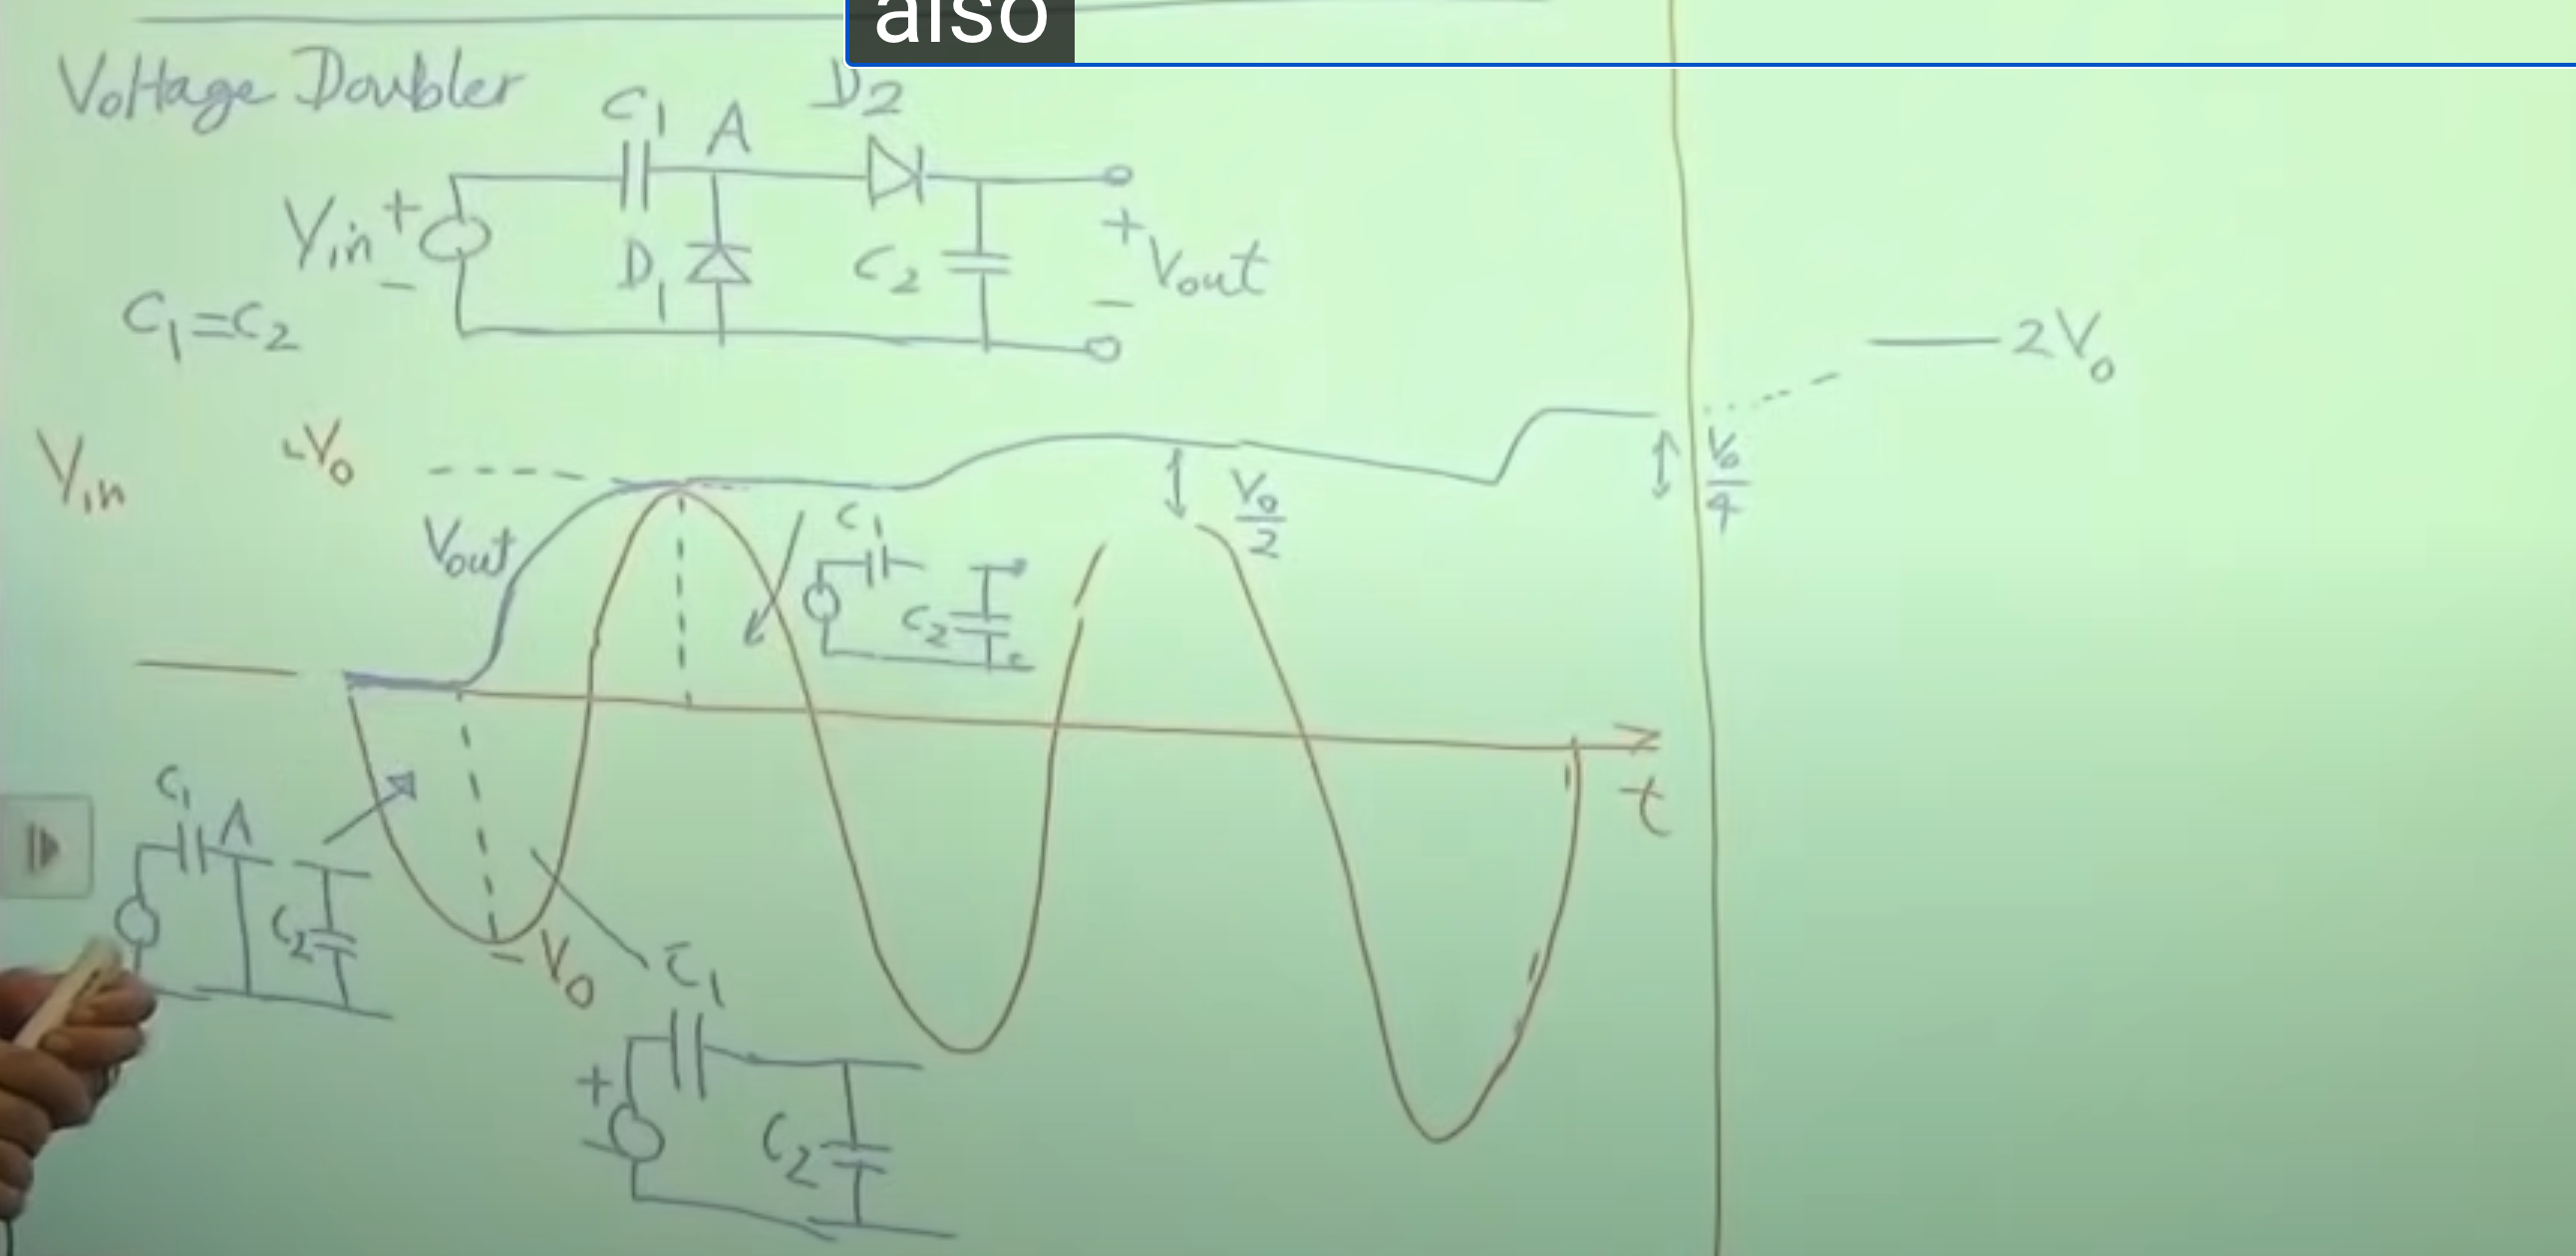 also
Voltage Doubler
C1 A D2
Vin + -
D1 C2
+ Vout -
C1=C2
2V0
Vin
+V0
Vout
C1
C2
V0/2
V0/4
t
C1 A
C2
-V0
C1
+
-
C2